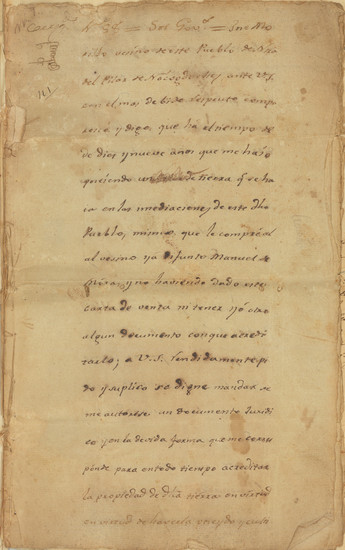 Sor Govor = José Mo
rillo vecino de este Pueblo de Nra
del Pilar de Nacogdoches, ante V.S.
con el mas devido respeto compa
resco y digo, que ha el tiempo
de dies y nueve años que me hallo
poseyendo un de tierra q. se ha
ya en las inmediaciones de este dho
Pueblo, mismo, que le compré
al vecino ya difunto Manuel
y no haviendo dado este
carta de venta ni tener yó otro
algun documento conque acredi
tarlo; a V.S. rendidamente pi
do y suplico se digne mandar se
me autorise un documento Juridi
co y en la devida forma que me corres
ponde para en todo tiempo acreditar
la propiedad de dha tierra en virtud
en virtud de haverla